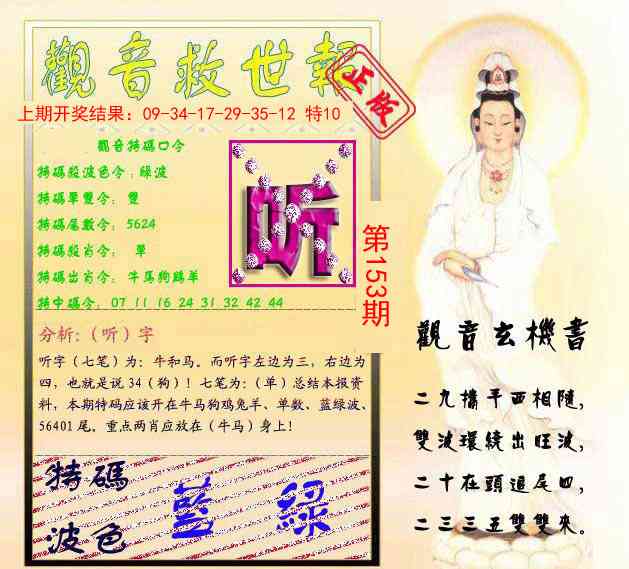 觀音救世報
正版
上期开奖结果：09-34-17-29-35-12 特10
觀音特碼口令
特碼殺波色令：綠波
特碼單雙令： 雙
特碼尾數令： 5624
特碼殺肖令： 單
特碼出肖令： 牛馬狗鷄羊
特中碼令： 07 11 16 24 31 32 42 44
听
第153期
分析：（听）字
听字（七笔）为：牛和马。而听字左边为三，右边为
四，也就是说 34（狗）！七笔为：（单）总结本报资
料，本期特码应该开在牛马狗鸡兔羊、单数、蓝绿波、
56401 尾。重点两肖应放在（牛马）身上！
特碼
波色
藍 綠
觀音玄機書
二九擋平西相隨，
雙波環繞出旺波，
二十在頭追尾四，
二三三五雙雙來。